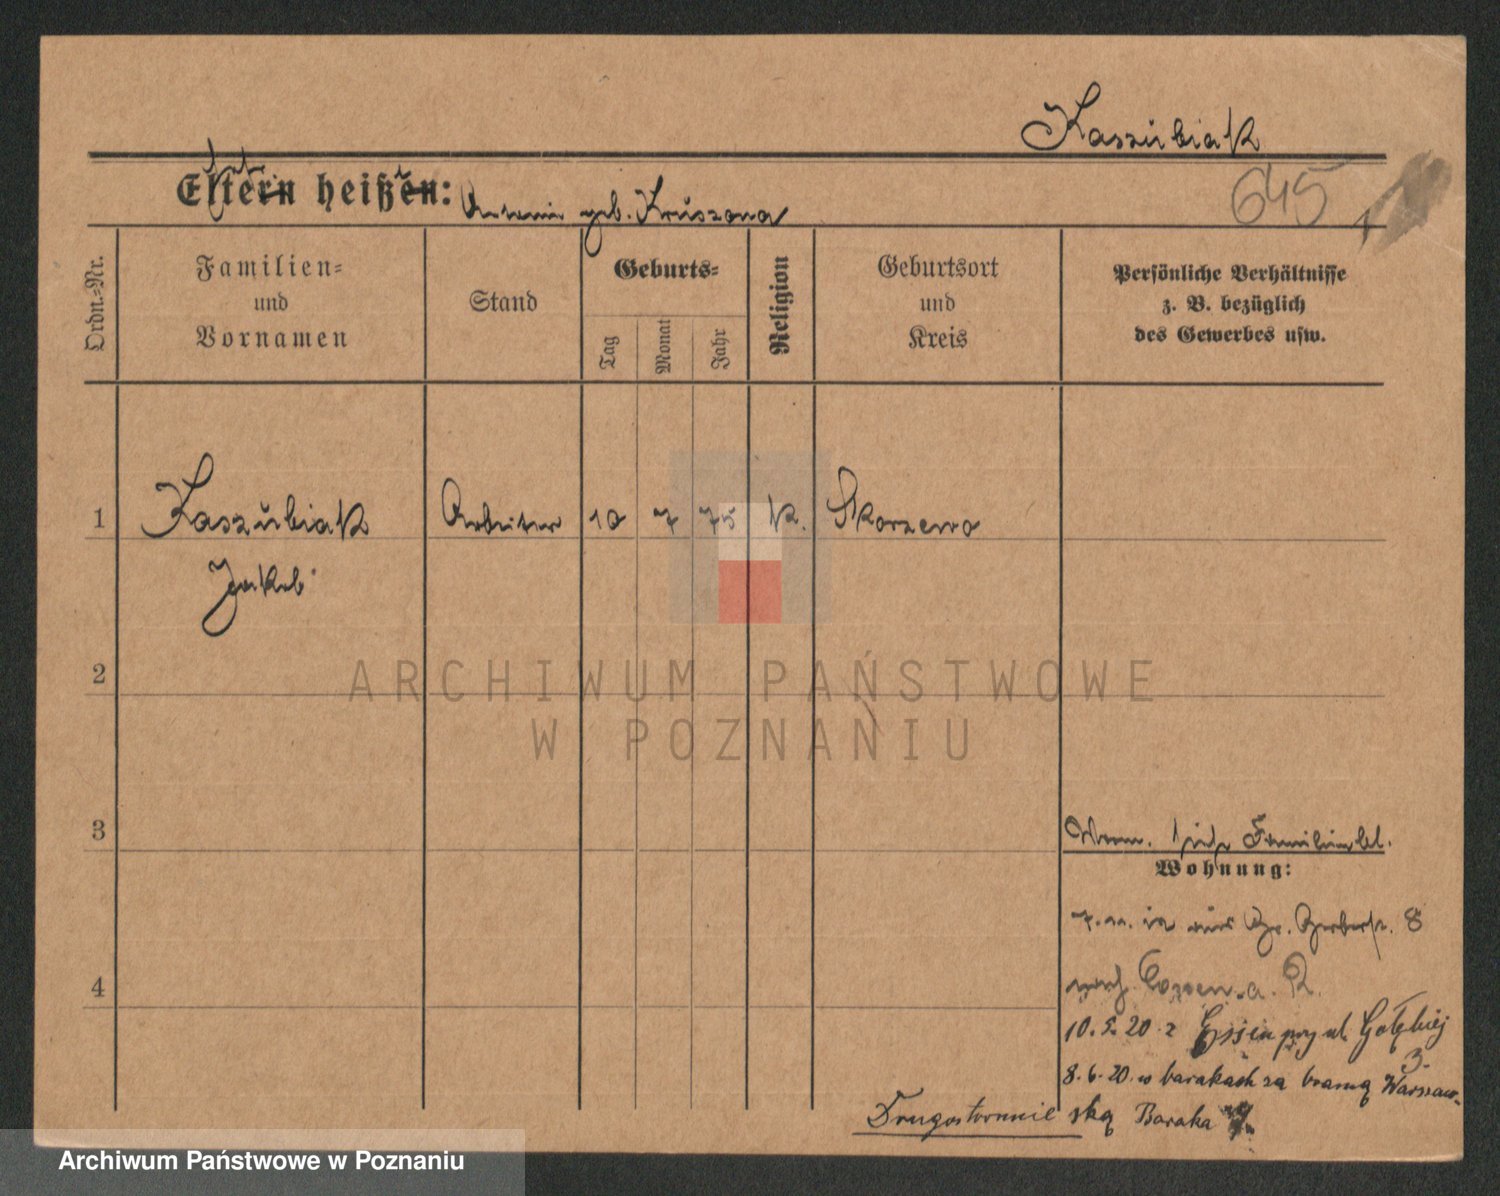 Kaszubiak
Eltern heißen: Antonie geb. Kruszona
645
Ordn.=Nr.
Familien=
und
Vornamen
Stand
Geburts=
Tag
Monat
Jahr
Religion
Geburtsort
und
Kreis
Persönliche Verhältnisse
z. B. bezüglich
des Gewerbes usw.
1 Kaszubiak Arbeiter 10 7 75 K. Skorzewo
Jakob
2
ARCHIWUM PAŃSTWOWE
W POZNANIU
3
siehe Familienbl.
Wohnung:
Gr. Gerberstr. 8
4
nach a. R.
10.5.20 z Essen przy ul. Gołębiej
3.
8.6.20. w barakach za bramą Warszaw-
ską Baraka
Drugostronnie
Archiwum Państwowe w Poznaniu